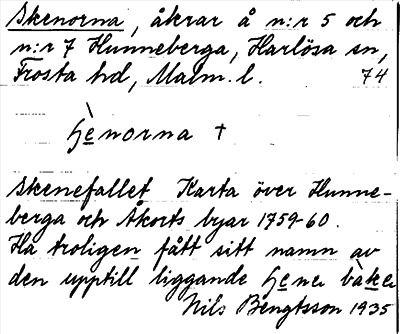 Skenorna, åkrar å n:r 5 och
n:r 7 Hunneberga, Harlösa sn,
Frosta hd, Malm. l. 74
hènorna †
Skenefallet Karta över Hunne-
berga och Åkorts byar 1759-60.
Ha troligen fått sitt namn av
den upptill liggande
Nils Bengtsson 1935